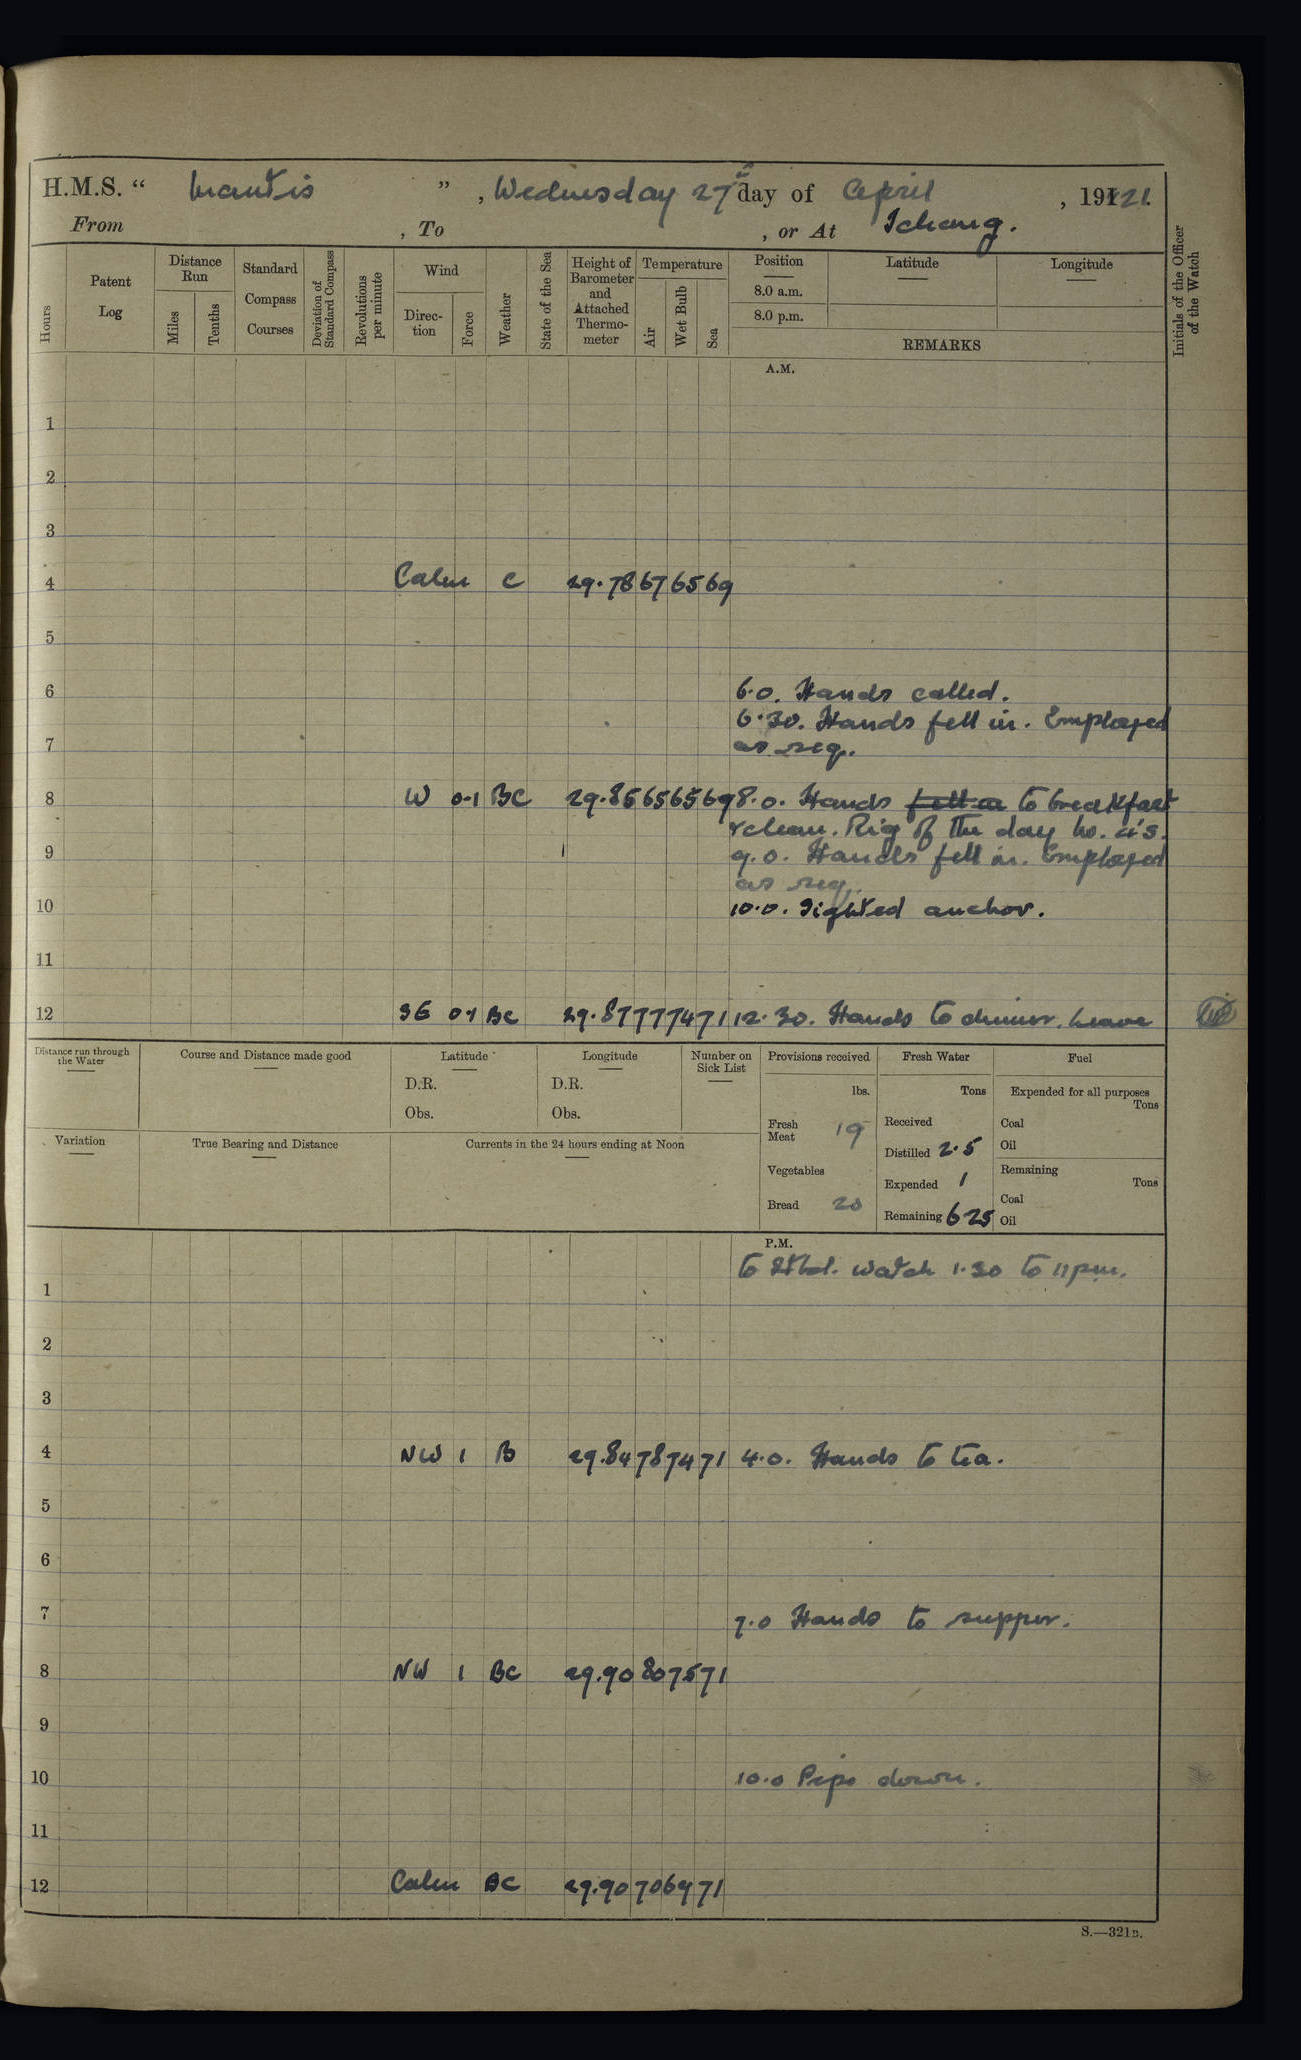 H.M.S. “ Mantis ” , Wednesday 27th day of April , 1921.
From , To , or At Ichang.
Hours
Patent Log
Distance Run
Miles
Tenths
Standard Compass Courses
Deviation of Standard Compass
Revolutions per minute
Wind
Direc-tion
Force
Weather
State of the Sea
Height of Barometer and Attached Thermo-meter
Temperature
Air
Wet Bulb
Sea
Position
8.0 a.m.
8.0 p.m.
Latitude
Longitude
REMARKS
Initials of the Officer of the Watch
A.M.
1
2
3
4 Calm C 29.78 67 65 69
5
6 6.0. Hands called.
6.30. Hands fell in. Employed
7 as req.
8 W 0-1 BC 29.85 65 65 69 8.0. Hands fell in to breakfast
& clean. Rig of the day No. 4's.
9 9.0. Hands fell in. Employed
as req.
10 10.0. Sighted anchor.
11
12 SE 0-1 BC 29.87 77 74 71 12.30. Hands to dinner. Leave
Distance run through the Water
Course and Distance made good
Latitude
D.R.
Obs.
Longitude
D.R.
Obs.
Number on Sick List
Provisions received
lbs.
Fresh Meat 19
Vegetables
Bread 20
Fresh Water
Tons
Received
Distilled 2.5
Expended 1
Remaining 6.25
Fuel
Expended for all purposes
Tons
Coal
Oil
Remaining
Tons
Coal
Oil
Variation
True Bearing and Distance
Currents in the 24 hours ending at Noon
P.M.
to Stbd. watch 1.30 to 11pm.
1
2
3
4 NW 1 B 29.84 78 74 71 4.0. Hands to tea.
5
6
7 7.0 Hands to supper.
8 NW 1 BC 29.90 80 75 71
9
10 10.0 Pipe down.
11
12 Calm BC 29.90 70 69 71
S.—321B.